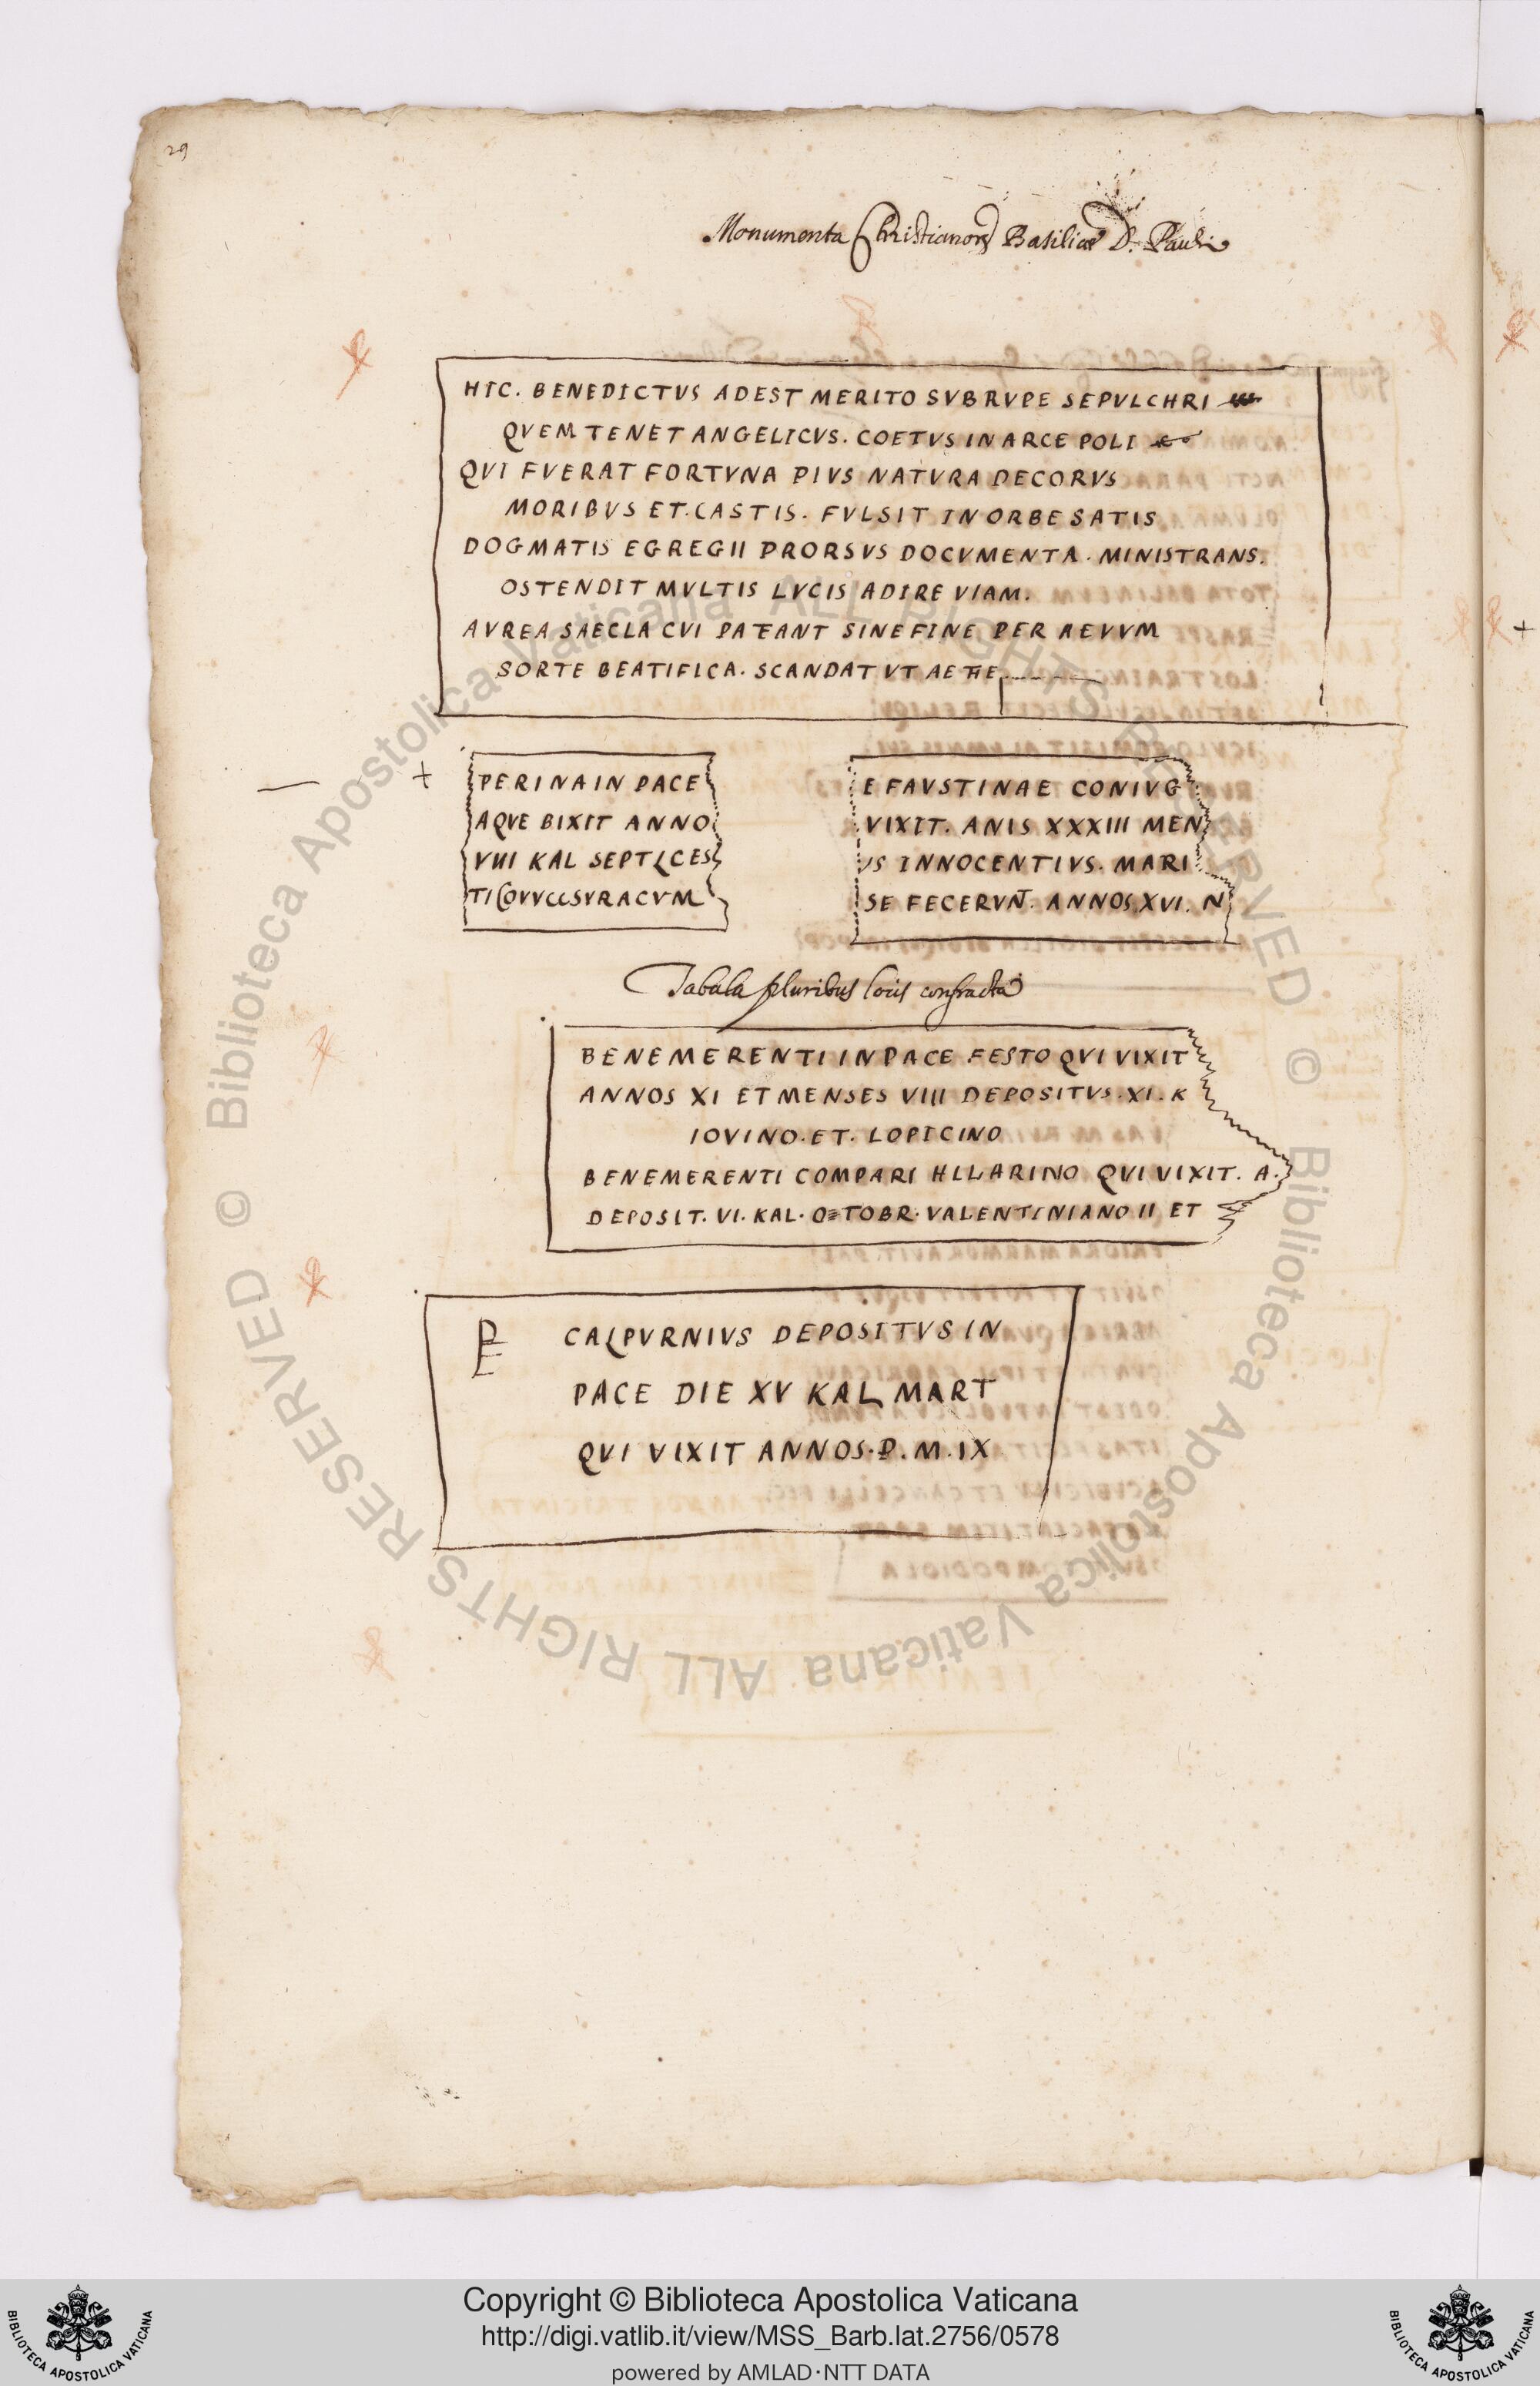 29
Monumenta Christianorum Basilicae D. Pauli
HIC. BENEDICTVS ADEST MERITO SVB RVPE SEPVLCHRI
QVEM TENET ANGELICVS. COETVS IN ARCE POLI
QVI FVERAT FORTVNA PIVS NATVRA DECORVS
MORIBVS ET. CASTIS. FVLSIT IN ORBE SATIS
DOGMATIS EGREGII PRORSVS DOCVMENTA. MINISTRANS.
OSTENDIT MVLTIS LVCIS ADIRE VIAM.
AVREA SAECLA CVI PATEANT SINE FINE PER AEVVM
SORTE BEATIFICA. SCANDAT VT AETHE
PERINA IN PACE
AQVE BIXIT ANNO
VIII KAL SEPT CES
E FAVSTINAE CONIVG
VIXIT. ANIS XXXIII MEN
VS INNOCENTIVS. MARI
SE FECERVNT. ANNOS XVI. N
Tabula pluribus locis confracta
BENEMERENTI IN PACE FESTO QVI VIXIT
ANNOS XI ET MENSES VIII DEPOSITVS. XI. K
IOVINO. ET. LOPICINO
BENEMERENTI COMPARI HILARINO QVI VIXIT. A.
DEPOSIT. VI. KAL. OCTOBR. VALENTINIANO II ET
CALPVRNIVS DEPOSITVS IN
PACE DIE XV KAL MART
QVI VIXIT ANNOS. P. M. IX
© Biblioteca Apostolica Vaticana ALL RIGHTS RESERVED © Biblioteca Apostolica Vaticana ALL RIGHTS RESERVED
BIBLIOTECA APOSTOLICA VATICANA
Copyright © Biblioteca Apostolica Vaticana
http://digi.vatlib.it/view/MSS_Barb.lat.2756/0578
powered by AMLAD·NTT DATA
BIBLIOTECA APOSTOLICA VATICANA